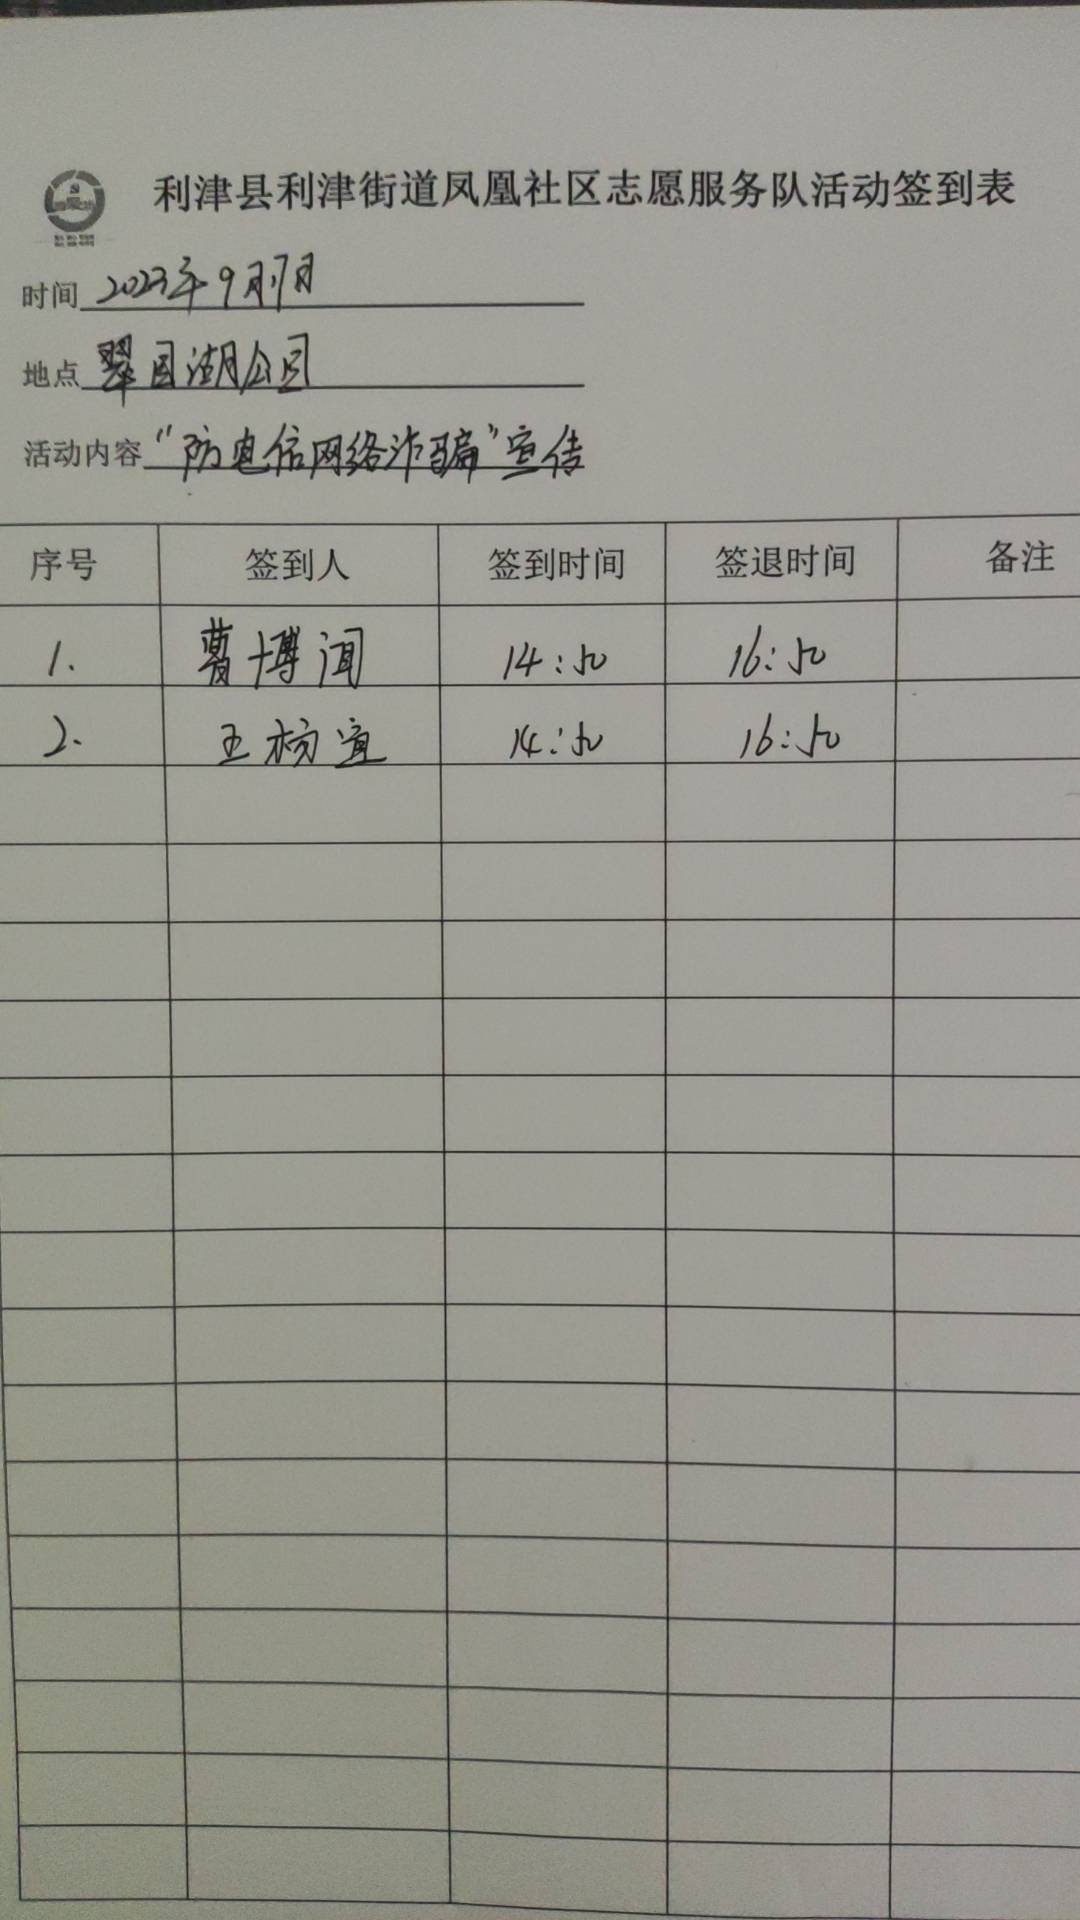 利津县利津街道凤凰社区志愿服务队活动签到表
时间 2023年9月17日
地点 翠园湖公园
活动内容 “防电信网络诈骗”宣传
序号 签到人 签到时间 签退时间 备注
1. 曹博闻 14:50 16:50
2. 王杨宜 14:50 16:50